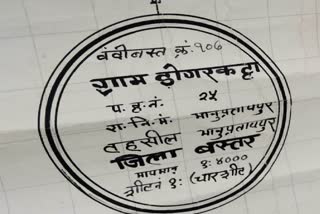 बंदोबस्त क्रं. १०७
ग्राम डोंगरकट्टा
प. ह. नं. २५
रा. नि. मं. भानुप्रतापपुर
तहसील भानुप्रतापपुर
जिला बस्तर
मापमान १: ४०००
शीट नं १: (चारशीट)